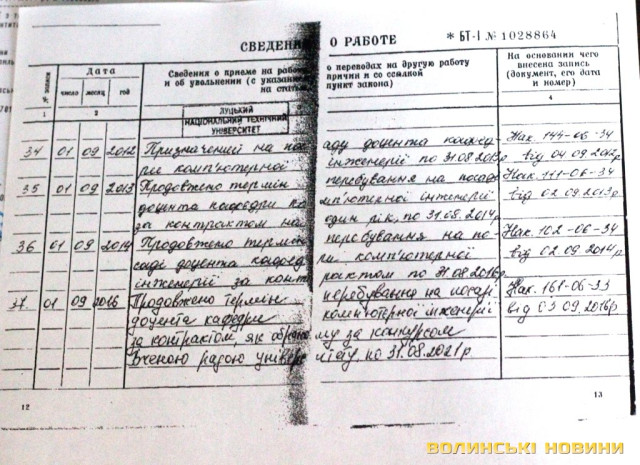 СВЕДЕНИ О РАБОТЕ
* БТ-I № 1028864
№ записи
Дата
число месяц год
Сведения о приеме на рабо
и об увольнении (с указани
на стать
о переводах на другую работу
причин и со ссылкой
пункт закона)
На основании чего
внесена запись
(документ, его дата
и номер)
1 2 4
ЛУЦЬКИЙ
НАЦІОНАЛЬНИЙ ТЕХНІЧНИЙ
УНІВЕРСИТЕТ
34 01 09 2012 Призначений на пос аду доцента Нак. 144-06-34
комп'ютерної інженерії по 31.08 від 04.09.2012р
35 01 09 2013 Продовжено термін перебування на посаді Нак. 111-06-34
доцента кафедри ко мп'ютерної інженерії від 02.09.2013р
за контрактом на один рік, по 31.08.2014р.
36 01 09 2014 Продовжено термін перебування на по Нак. 102-06-34
саді доцента кафед ри комп'ютерної від 02.09.2014р
інженерії за конт рактом по 31.08.2016р.
37 01 09 2016 Продовжено термін перебування на посаді Нак. 161-06-33
доцента кафедри комп'ютерної інженерії від 03.09.2016р
за контрактом, як обрано му за конкурсом
Вченою радою універс итету, по 31.08.2021р.
12 13
ВОЛИНСЬКІ НОВИНИ